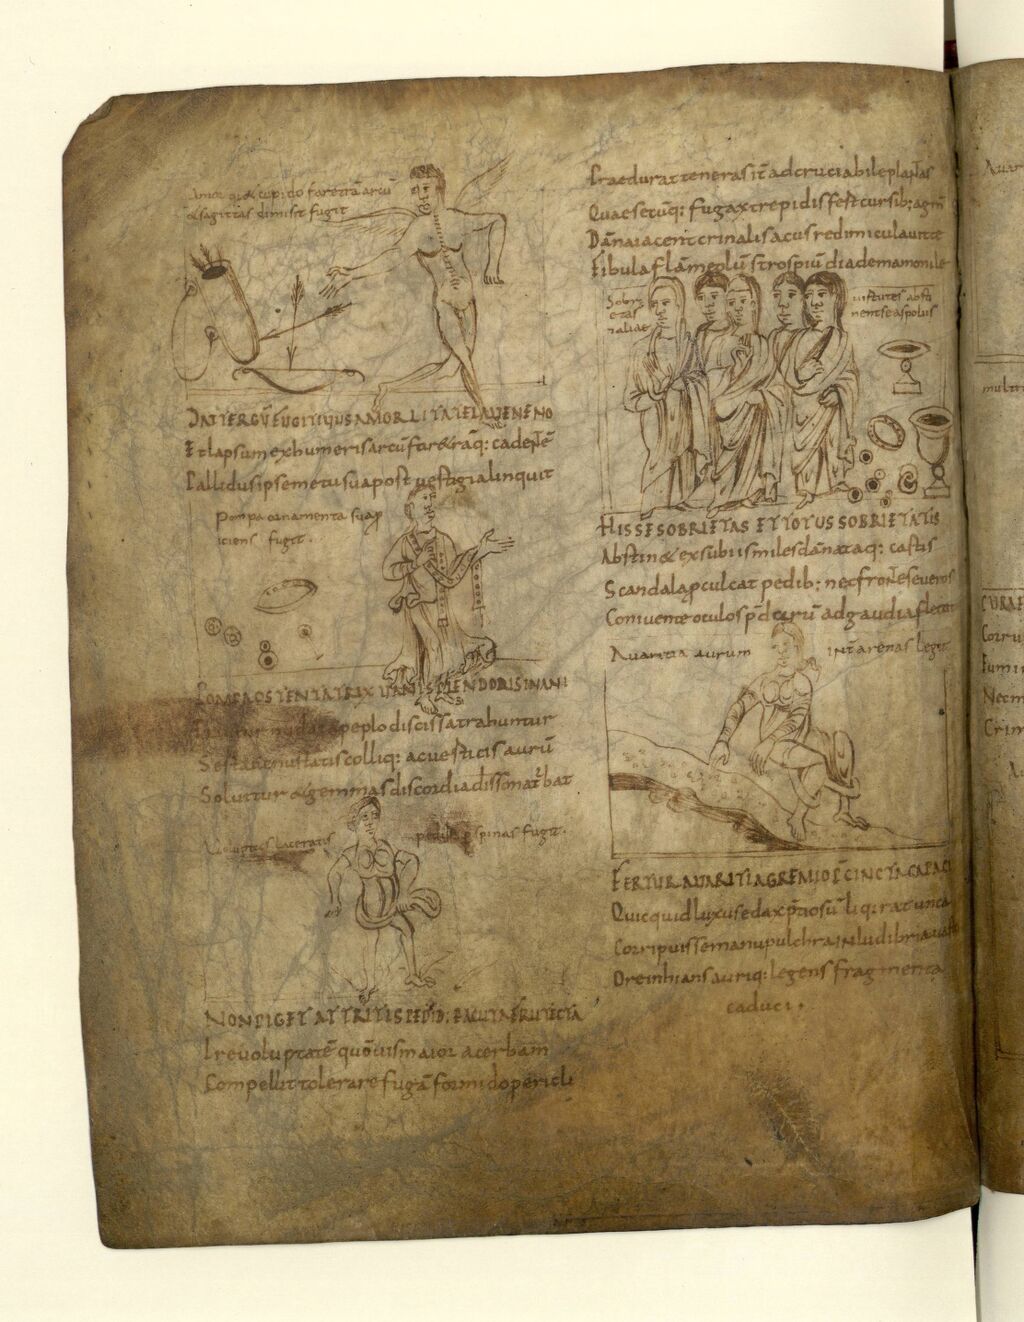 Amor qi & cupido faretrā arcū
& sagittas dimisit fugit
DAT TERGŪ FUGITIVUS AMOR LITA TELA VENENO
Et lapsum ex humeris arcū far&rāq: cadenTē
Pallidus ipse metu sua post vestigia linquit
Pompa ornamenta sua p
iciens fugit.
POMPA OSTENTATRIX VANI SPLENDORIS INANI
nudata peplo discissa trahuntur
Serta venustatis colliq: ac verticis aurū
Soluitur & gemmas discordia dissonaT bat
Voluptas laceratis pedib: p spinas fugit.
NON PIGET ATTRITIS PEDIB: P ACUTA FRUTECTA
Ire voluptatē quō vis maior acerbam
Compellit tolerare fugā formido pericli
Praedurat teneras iT ad cruciabile plantas
Quase tuq: fugax trepidis fert cursib: agm
Dāna iacent crinalis acus redimicula uitte
Fibula flāmeolū strospiū diadema monile
Sobri
etas
aliae
virtutes abstī
nent se a spoliis
HIS SE SOBRIETAS ET TOTUS SOBRIETATIS
Abstin& exsubiis miles dānataq: castis
Scandala pculcat pedib: nec fronTe severos
Coniuente oculos pdarū ad gaudia flectit
Avaritia aurum inT arenas legit
FERTUR AVARITIA GREMIO PCINCTA CAPACI
Quicquid luxus edax ptiosū liqirat unca
Corripuisse manu pulchra in ludibria vasto
Ore inhians auriq: legens fragmenta
caduci.
Avar
multi
CURAE
Corru
Fumi
Necn
Crim